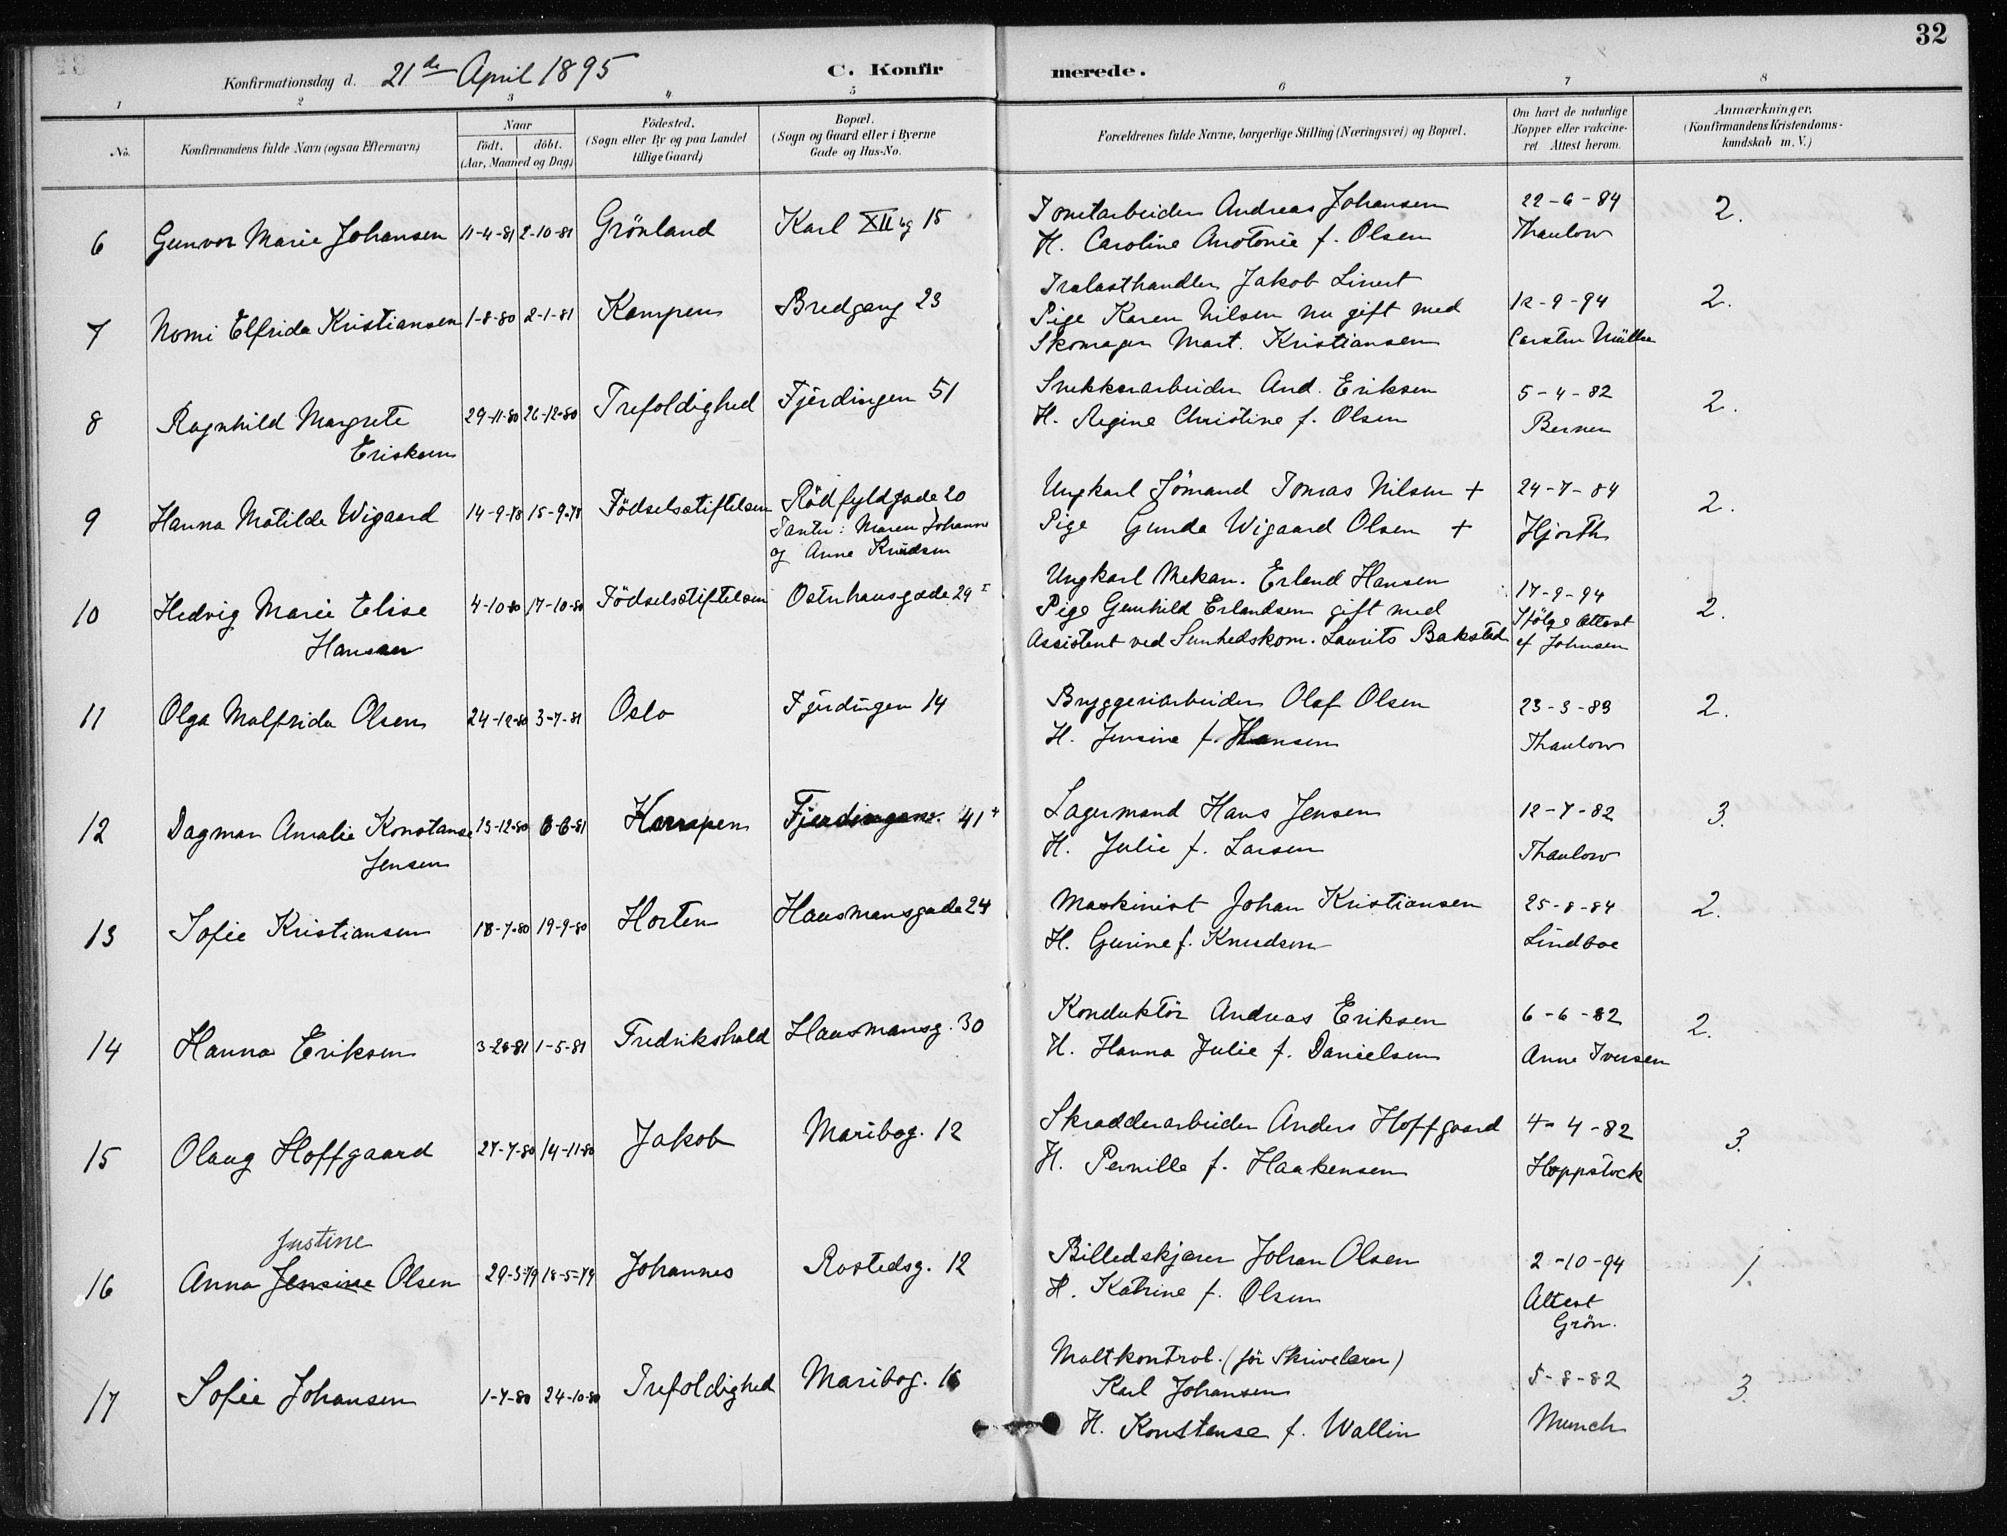 32
Konfirmationsdag d. 21de April 1895
C. Konfirmerede.
1 2 3 4 5 6 7 8
No. Konfirmandens fulde Navn (ogsaa Efternavn) Naar födt. döbt. (Aar, Maaned og Dag) Födested. (Sogn eller By og paa Landet tillige Gaard) Bopæl. (Sogn og Gaard eller i Byerne Gade og Hus-No. Forældrenes fulde Navne, borgerlige Stilling (Næringsvei) og Bopæl. Om havt de naturlige Kopper eller vakcineret Attest herom. Anmærkninger, (Konfirmandens Kristendomskundskab m. V.)
6 Gunvor Marie Johansen 11-4-81 2-10-81 Grönland Karl XII g 15 Andreas Johansen 22-6-84 2.
H. Caroline Anotonie f. Olsen Thaulow
7 Nomi Elfrida Kristiansen 1-8-80 2-1-81 Kampen Bredgang 23 Trælasthandler Jakob Linert 12-9-94 2.
Pige Karen Nilsen nu gift med Carsten Müller
Skomager Mart. Kristiansen
8 Ragnhild Margrete 29-11-80 26-12-80 Trefoldighed Fjerdingen 51 Snekkerarbeider And. Eriksen 5-4-82 2.
Eriksen H. Regine Christine f. Olsen Berner
9 Hanna Matilde Wigaard 14-9-78 15-9-78 Födselsstiftelsen Rödfyldgade 20 Ungkarl Sömand Tomas Nilsen + 24-7-84 2.
Tanter: Maren Johanne Pige Gunda Wigaard Olsen + Hjorth
og Anne Knudsen
10 Hedvig Marie Elise 4-10-80 17-10-80 Födselsstiftelsen Osterhausgade 29 I Ungkarl Mekan. Erland Hansen 17-9-94 2.
Hansen Pige Gunhild Erlandsen gift med Ifölge Attest
Assistent ved Sunhedskom. Laurits Bakstad af Johnsen
11 Olga Malfrida Olsen 24-12-80 3-7-81 Oslo Fjerdingen 14 Bryggeriarbeider Olaf Olsen 23-3-83 2.
H. Jensine f. Hansen Thaulow
12 Dagmar Amalie Konstanse 13-12-80 6-6-81 Kampen Fjerdingen 41 Lagermand Hans Jensen 12-7-82 3.
Jensen H. Julie f. Larsen Thaulow
13 Sofie Kristiansen 18-7-80 19-9-80 Horten Hausmansgade 24 Maskinist Johan Kristiansen 25-8-84 2.
H. Gurine f. Knudsen Lindboe
14 Hanna Eriksen 3-26-81 1-5-81 Fredrikshald Hausmansg. 30 Konduktör Andreas Eriksen 6-6-82 2.
H. Hanna Julie f. Danielsen Anne Iversen
15 Olaug Hoffgaard 27-7-80 14-11-80 Jakob Maribog. 12 Skradderarbeider Anders Hoffgaard 4-4-82 3.
H. Pernille f. Haakensen Hoppstock
Justine
16 Anna Jensine Olsen 29-3-79 18-5-79 Johannes Rostedsg. 12 Billedskjærer Johan Olsen 2-10-94 1.
H. Katrine f. Olsen Attest
Grön.
17 Sofie Johansen 1-7-80 24-10-80 Trefoldighed Maribog. 16 Maltkontrol. (för Skrivelærer) 5-8-82 3.
Karl Johansen
H. Konstense f. Wallin Munch